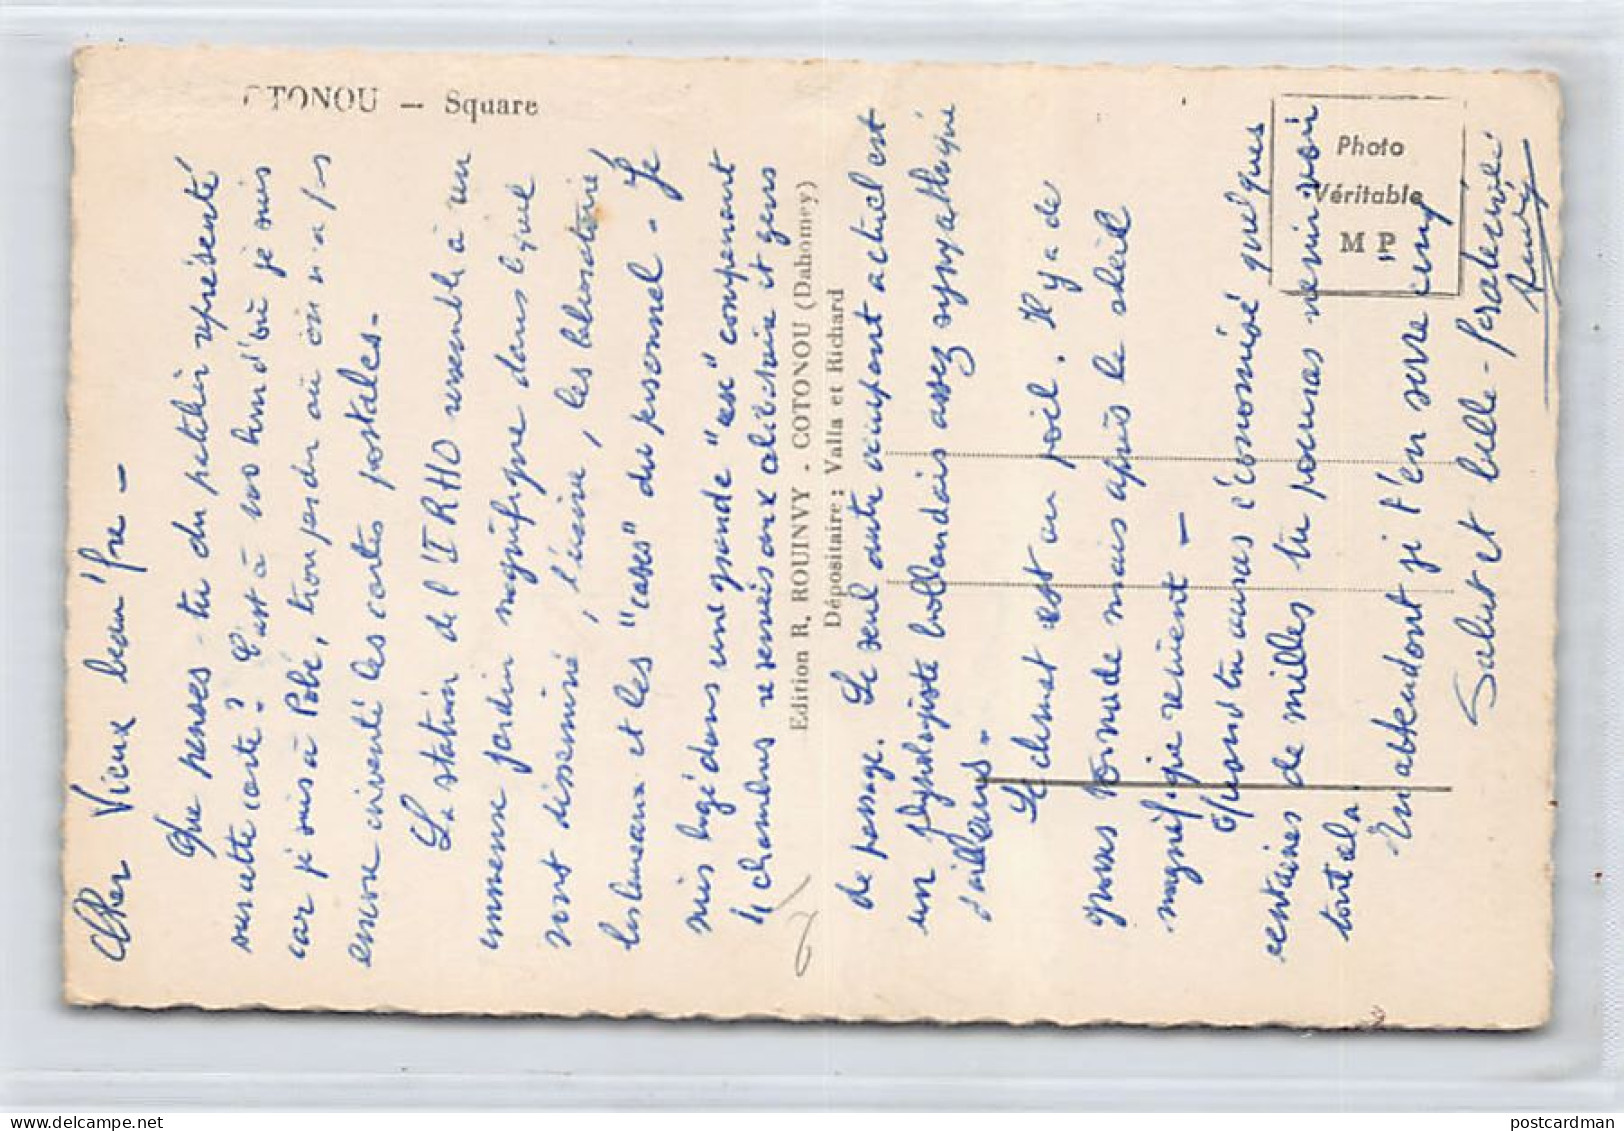 OTONOU — Square
Cher Vieux beau'fre —
Que penses-tu du patelin représenté
sur cette carte? C'est à vos d'où je suis
car je suis à Pobé, trou perdu où on n'a pas
encore inventé les cartes postales.
La station de l'IRHO ressemble à un
immense jardin magnifique dans lequel
sont disséminé, l'usine, les laboratoires
les bureaux et les "cases" du personnel. Je
suis logé dans une grande "case" comprenant
4 chambres réservées aux célibataires et gens
de passage. Le seul autre occupant actuel est
un physiologiste hollandais assez sympathique
d'ailleurs.
Le climat est au poil. Il y a de
grosses tornade mais après le soleil
magnifique revient —
Quand tu auras économisé quelques
centaines de milles tu pourras venir voir
tout cela.
En attendant je t'en serre cinq
Salut et belle-fraternité
Edition R. ROUINVY - COTONOU (Dahomey)
Dépositaire : Valla et Richard
Photo
Véritable
M P
postcardman